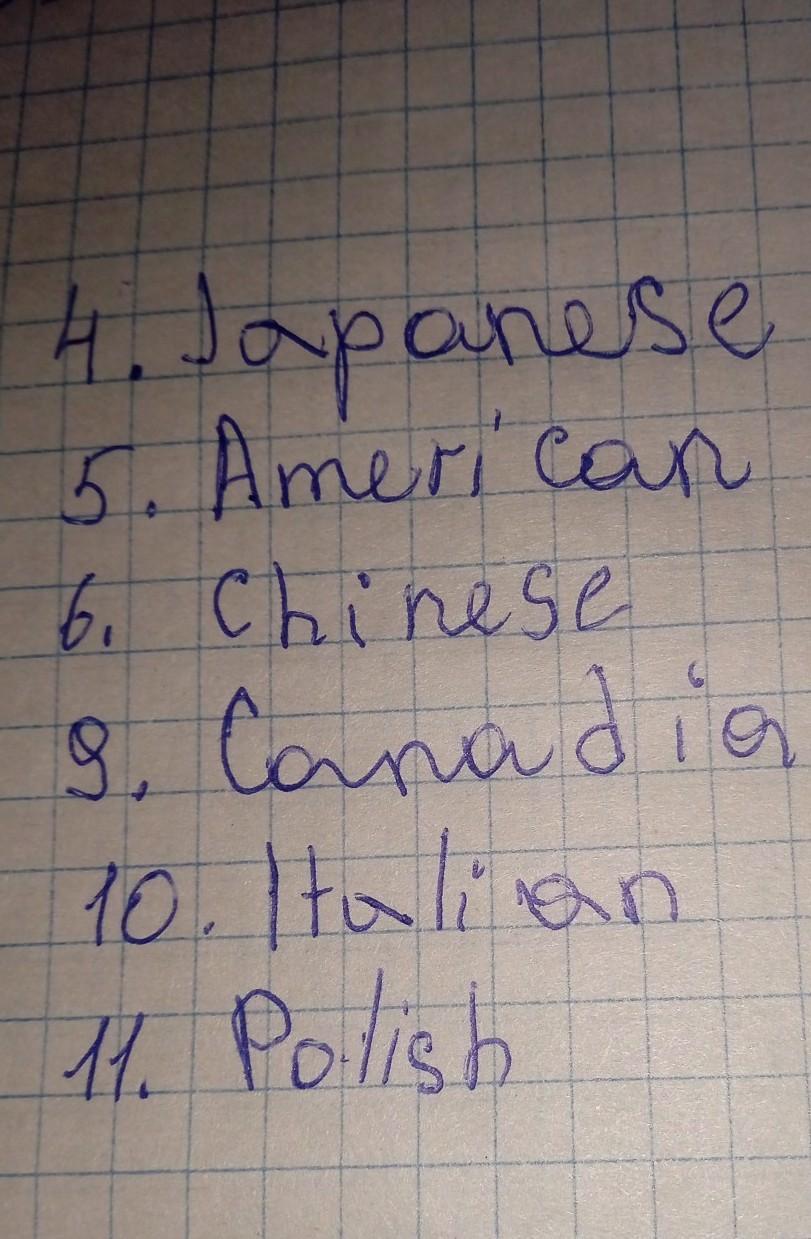 4. Japanese
5. American
6. Chinese
9. Canadia
10. Italian
11. Polish